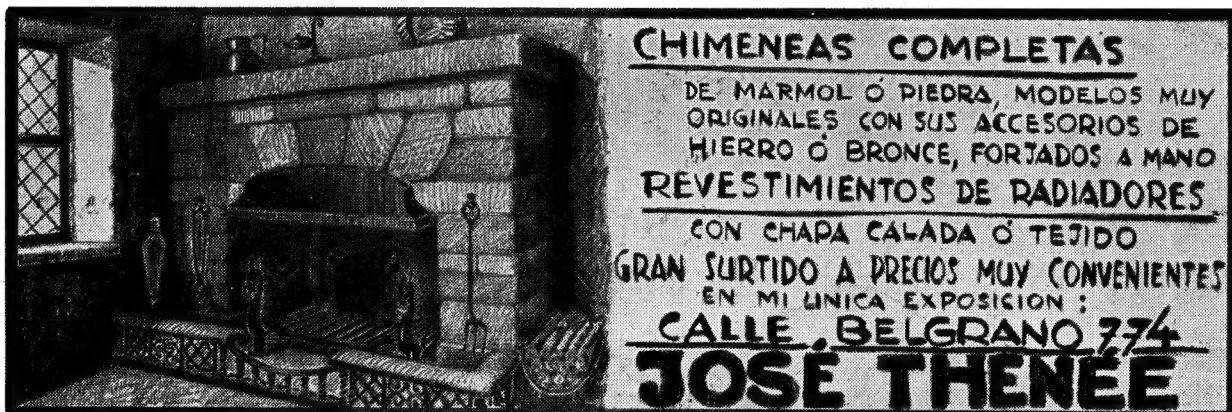 CHIMENEAS COMPLETAS
DE MARMOL Ó PIEDRA, MODELOS MUY
ORIGINALES CON SUS ACCESORIOS DE
HIERRO Ó BRONCE, FORJADOS A MANO
REVESTIMIENTOS DE RADIADORES
CON CHAPA CALADA Ó TEJIDO
GRAN SURTIDO A PRECIOS MUY CONVENIENTES
EN MI UNICA EXPOSICION:
CALLE BELGRANO 774
JOSÉ THENÉE